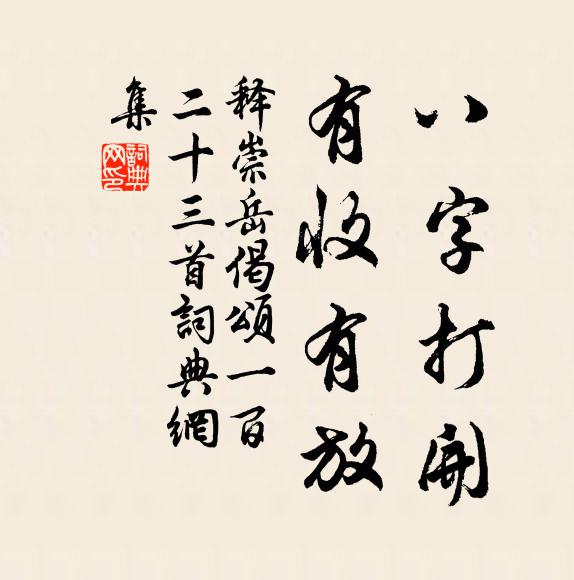 八字打開
有收有放
释崇岳偈頌一百
二十三首詞典網
集
詞典
网印